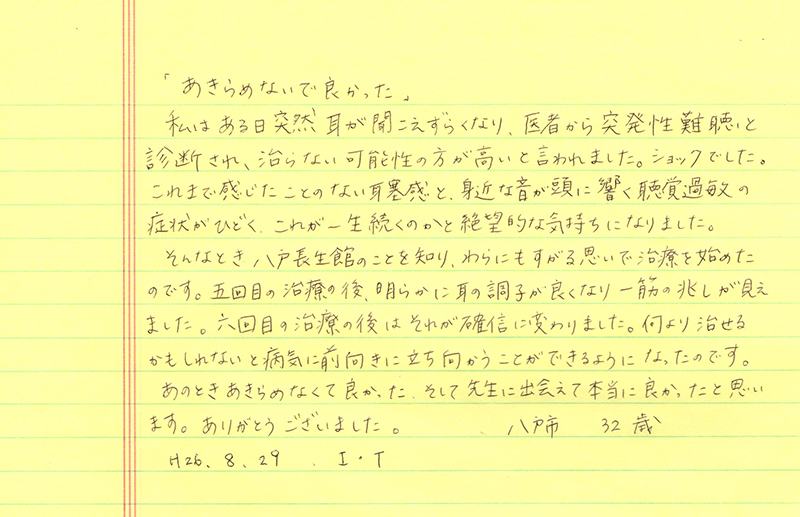 「あきらめないで良かった」
私はある日突然耳が聞こえずらくなり、医者から突発性難聴と
診断され、治らない可能性の方が高いと言われました。ショックでした。
これまで感じたことのない耳塞感と、身近な音が頭に響く聴覚過敏の
症状がひどく、これが一生続くのかと絶望的な気持ちになりました。
そんなとき八戸長生館のことを知り、わらにもすがる思いで治療を始めた
のです。五回目の治療の後、明らかに耳の調子が良くなり一筋の兆しが見え
ました。六回目の治療の後はそれが確信に変わりました。何より治せる
かもしれないと病気に前向きに立ち向かうことができるようになったのです。
あのときあきらめなくて良かった、そして先生に出会えて本当に良かったと思い
ます。ありがとうございました。 八戸市 32歳
H26.8.29 I・T